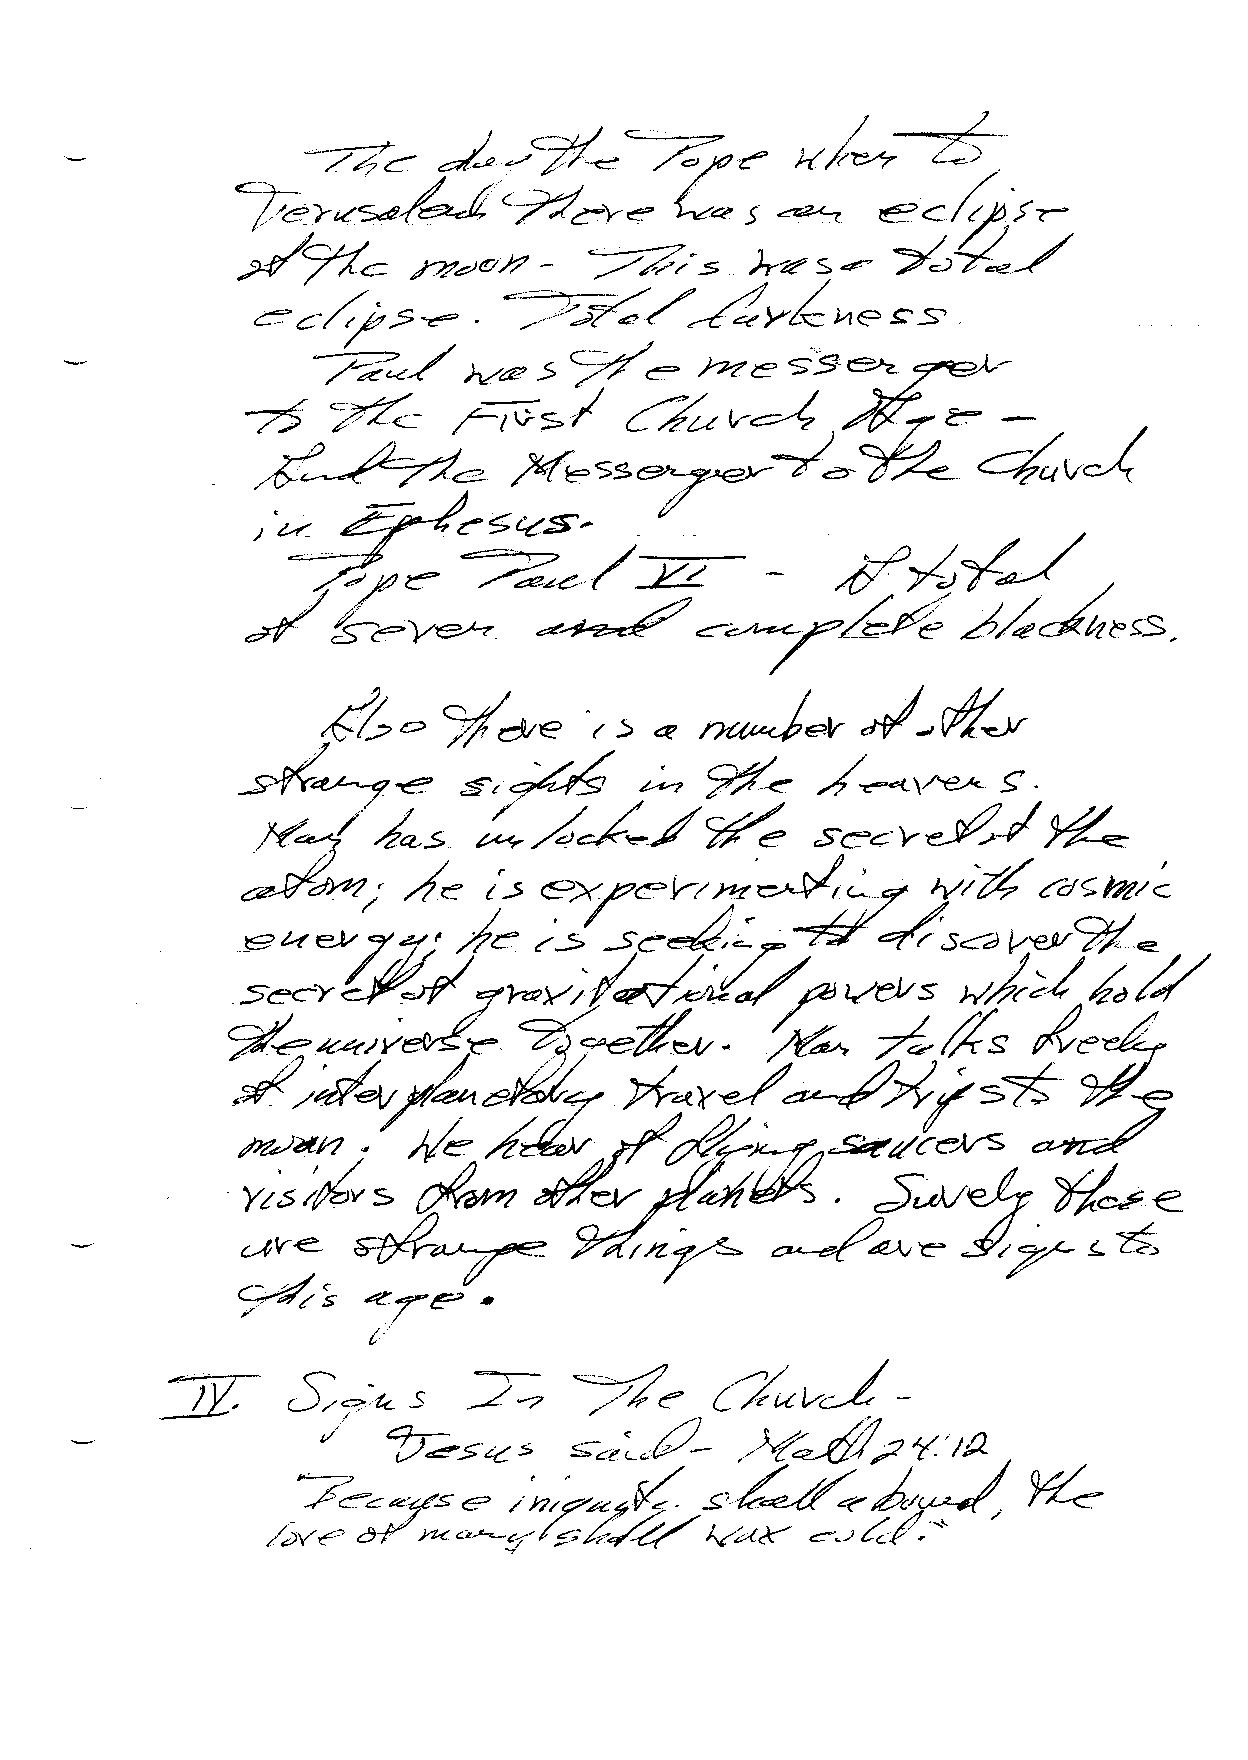 The day the Pope when to
Jerusalem there was an eclipse
of the moon - This was a total
eclipse. Total darkness
Paul was the messenger
to the First Church Age -
And the Messenger to the Church
in Ephesus.
Pope Paul VI - A total
of seven and complete blackness.
Also there is a number of other
strange sights in the heavens.
Man has unlocked the secret of the
atom; he is experimenting with cosmic
energy; he is seeking to discover the
secret of gravitational powers which hold
the universe together. Man talks freely
of interplanetary travel and trips to the
moon. We hear of flying saucers and
visitors from other planets. Surely these
are strange things and are signs to
this age.
IV. Signs In The Church -
Jesus said - Math 24:12
Because iniquity shall abound, the
love of many shall wax cold."